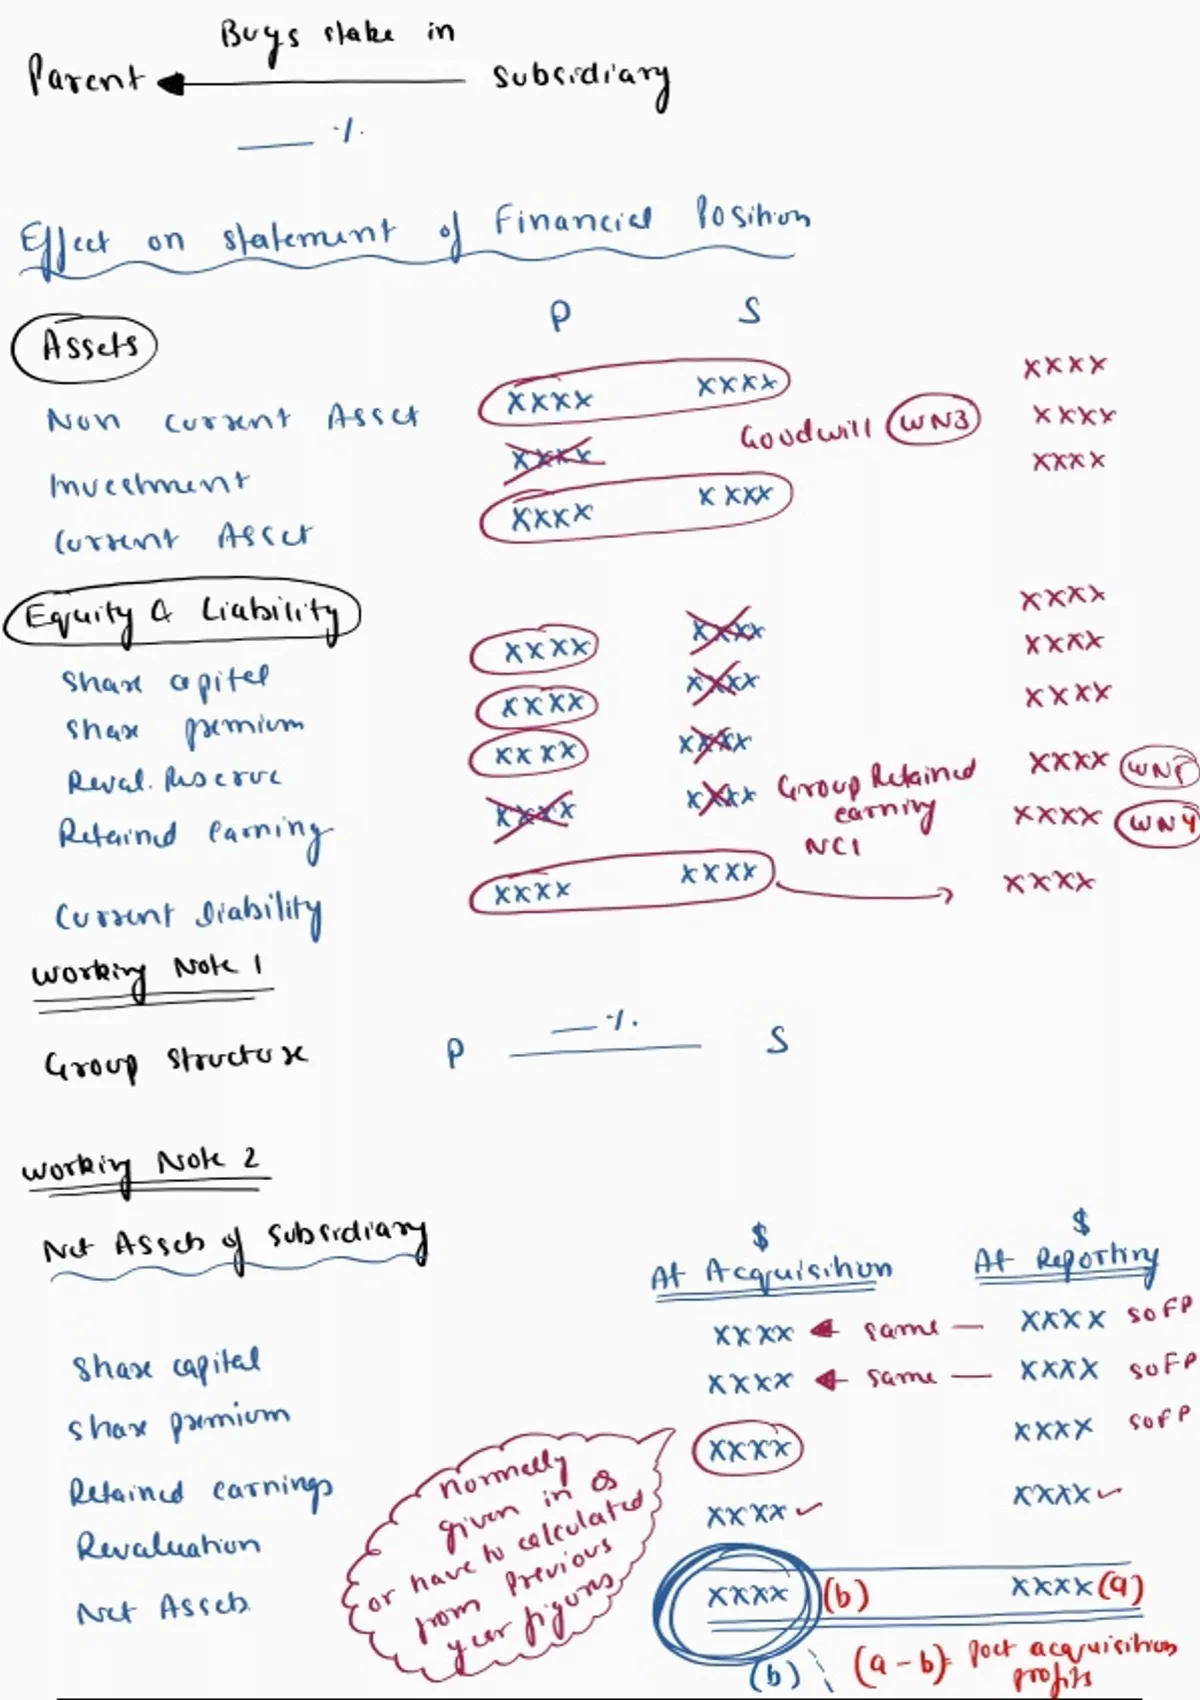 Buys stake in
Parent subsidiary
___ %
Effect on statement of Financial Position
P S
Assets
Non Current Asset XXXX XXXX XXXX
Investment XXXX Goodwill WN3 XXXX
Current Asset XXXX XXXX XXXX
Equity & Liability
Share capital XXXX XXXX XXXX
Share premium XXXX XXXX XXXX
Reval. Reserve XXXX XXXX XXXX
Retained earning XXXX XXXX Group Retained earning XXXX WN5
NCI XXXX WN4
Current liability XXXX XXXX XXXX
Working Note 1
Group Structure P ___ % S
Working Note 2
Net Assets of Subsidiary
$ $
At Acquisition At Reporting
Share capital XXXX same XXXX SOFP
Share premium XXXX same XXXX SOFP
Retained earnings XXXX XXXX SOFP
Revaluation XXXX XXXX
Net Assets XXXX (b) XXXX (a)
(b) (a-b) = Post acquisition
profits
normally
given in Qs
or have to calculated
from Previous
year figures